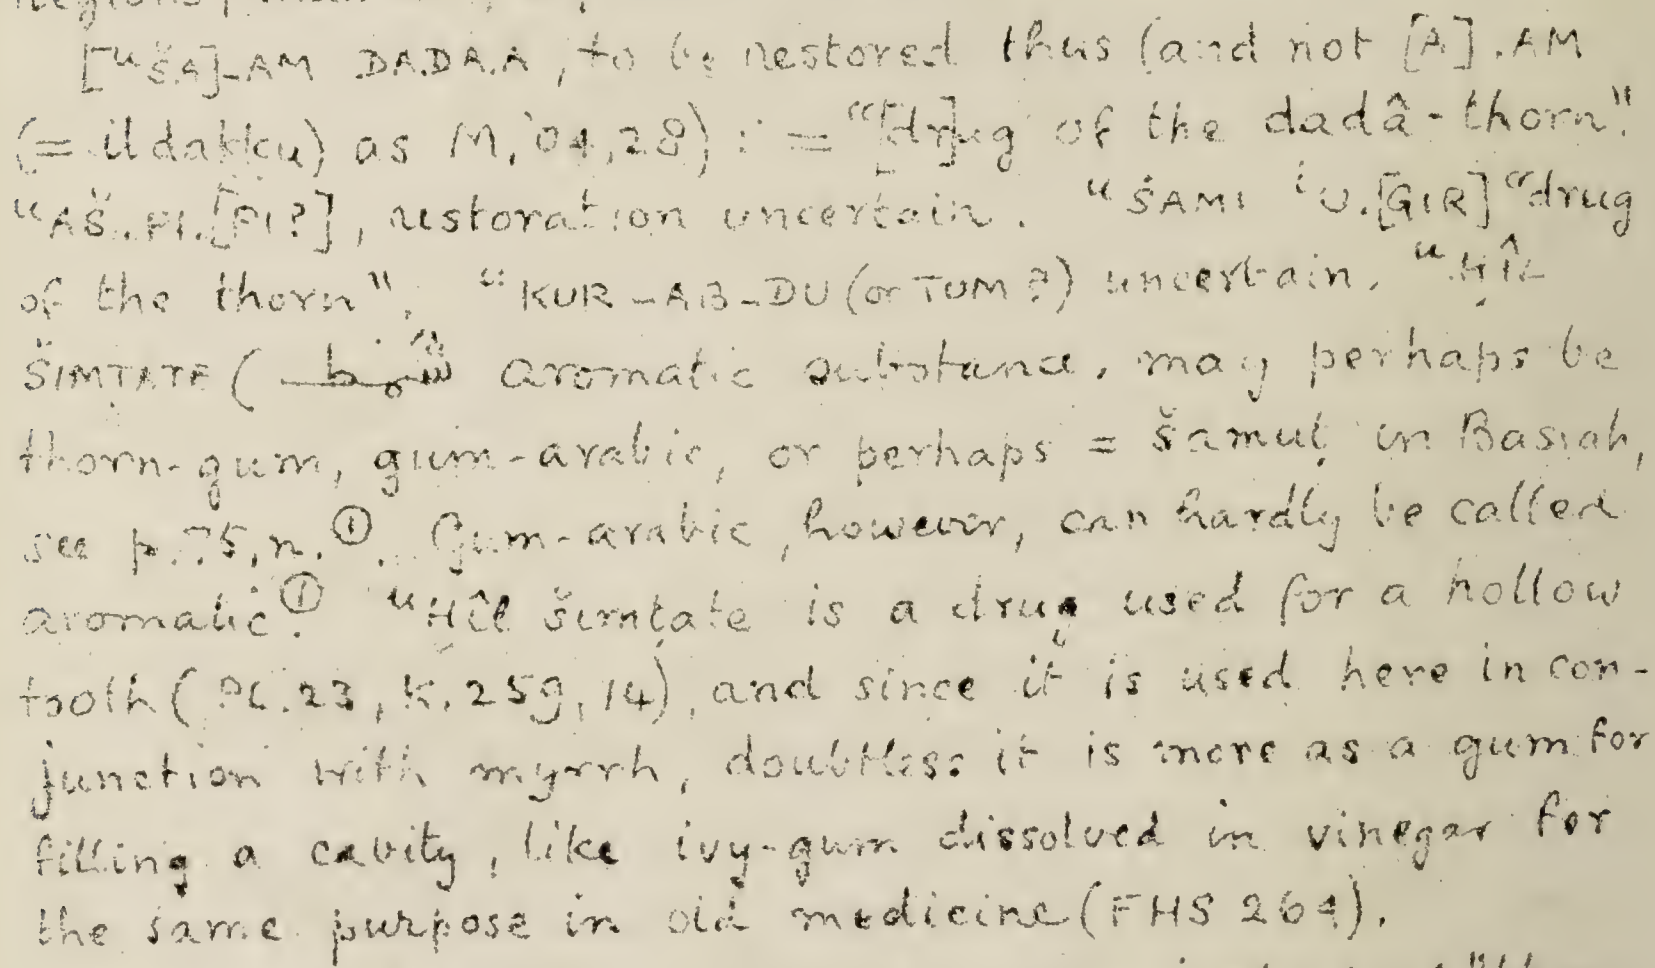 [ᵘŠA]-AM DA.DA.A, to be restored thus (and not [A].AM
(= ildakku) as M, '04, 28) : = "[dr]ug of the dadâ-thorn".
ᵘAŠ.PI.[PI?], restoration uncertain. ᵘŠAMI ⁱU.[GIR] "drug
of the thorn", ᵘKUR-AB-DU (or TUM?) uncertain. ᵘHîL
ŠIMṬATE ( aromatic substance, may perhaps be
thorn-gum, gum-arabic, or perhaps = šamuṭ in Basrah,
see p. 75, n. ①. Gum-arabic, however, can hardly be called
aromatic.① ᵘHîl šimṭate is a drug used for a hollow
tooth (Pl. 23, K. 259, 14), and since it is used here in con-
junction with myrrh, doubtless it is more as a gum for
filling a cavity, like ivy-gum dissolved in vinegar for
the same purpose in old medicine (FHS 264).